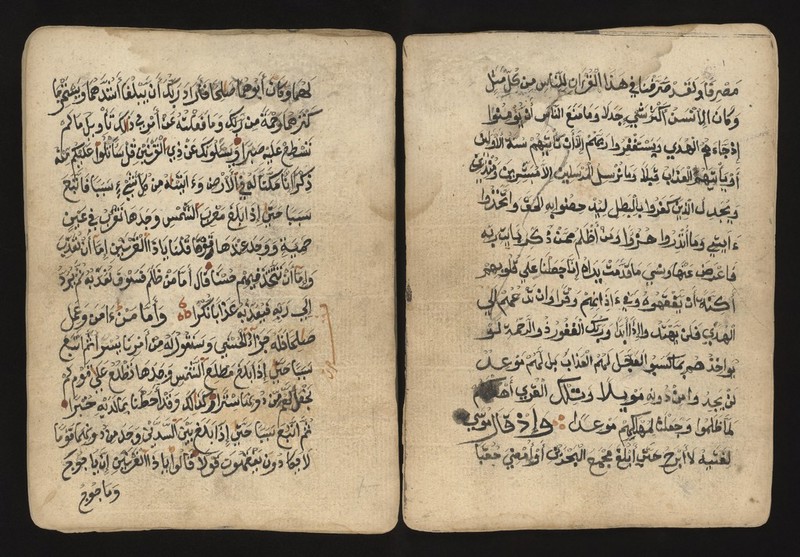 مصرفا ولقد صرفنا في هذا القرءان للناس من كل مثل
وكان الانسن أكثر شيء جدلا وما منع الناس أن يؤمنوا
إذ جاءهم الهدي ويستغفروا ربهم إلا أن تأتيهم سنة الأولين
أو يأتيهم العذاب قبلا وما نرسل المرسلين إلا مبشرين ومنذرين
ويجدل الذين كفروا بالبطل ليدحضوا به الحق واتخذوا
ءايتي وما أنذروا هزوا ومن أظلم ممن ذكر بايت ربه
فاعرض عنها ونسي ما قدمت يداه إنا جعلنا علي قلوبهم
أكنة أن يفقهوه وفي ءاذانهم وقرا وان تدعهم إلي
الهدي فلن يهتدوا إذا أبدا وربك الغفور ذو الرحمة لو
يواخذهم بما كسبوا لعجل لهم العذاب بل لهم موعد
لن يجدوا من دونه مويلا وتلك القري أهلكنهم
لما ظلموا وجعلنا لمهلكهم موعدا وإذ قال موسي
لفتيه لا أبرح حتي أبلغ مجمع البحرين أو أمضي حقبا
لهما وكان أبوهما صلحا فأراد ربك أن يبلغا أشدهما ويستخرجا
كنزهما رحمة من ربك وما فعلته عن أمري ذلك تأويل ما لم
تسطع عليه صبرا ويسئلونك عن ذي القرنين قل سأتلوا عليكم منه
ذكرا إنا مكنا له في الأرض وءاتيناه من كل شيء سببا فاتبع
سببا حتي إذا بلغ مغرب الشمس وجدها تغرب في عين
حمية ووجد عندها قوما قلنا ياذا القرنين إما أن تعذب
وإما أن تتخذ فيهم حسنا قال أما من ظلم فسوف نعذبه ثم يرد
إلي ربه فيعذبه عذابا نكرا وأما من ءامن وعمل
صلحا فله جزاء الحسني وسنقول له من أمرنا يسرا ثم اتبع
سببا حتي إذا بلغ مطلع الشمس وجدها تطلع علي قوم لم
نجعل لهم من دونها سترا كذالك وقد أحطنا بما لديه خبرا
ثم اتبع سببا حتي إذا بلغ بين السدين وجد من دونهما قوما
لا يكادون يفقهون قولا قالوا ياذا القرنين إن ياجوج
وماجوج